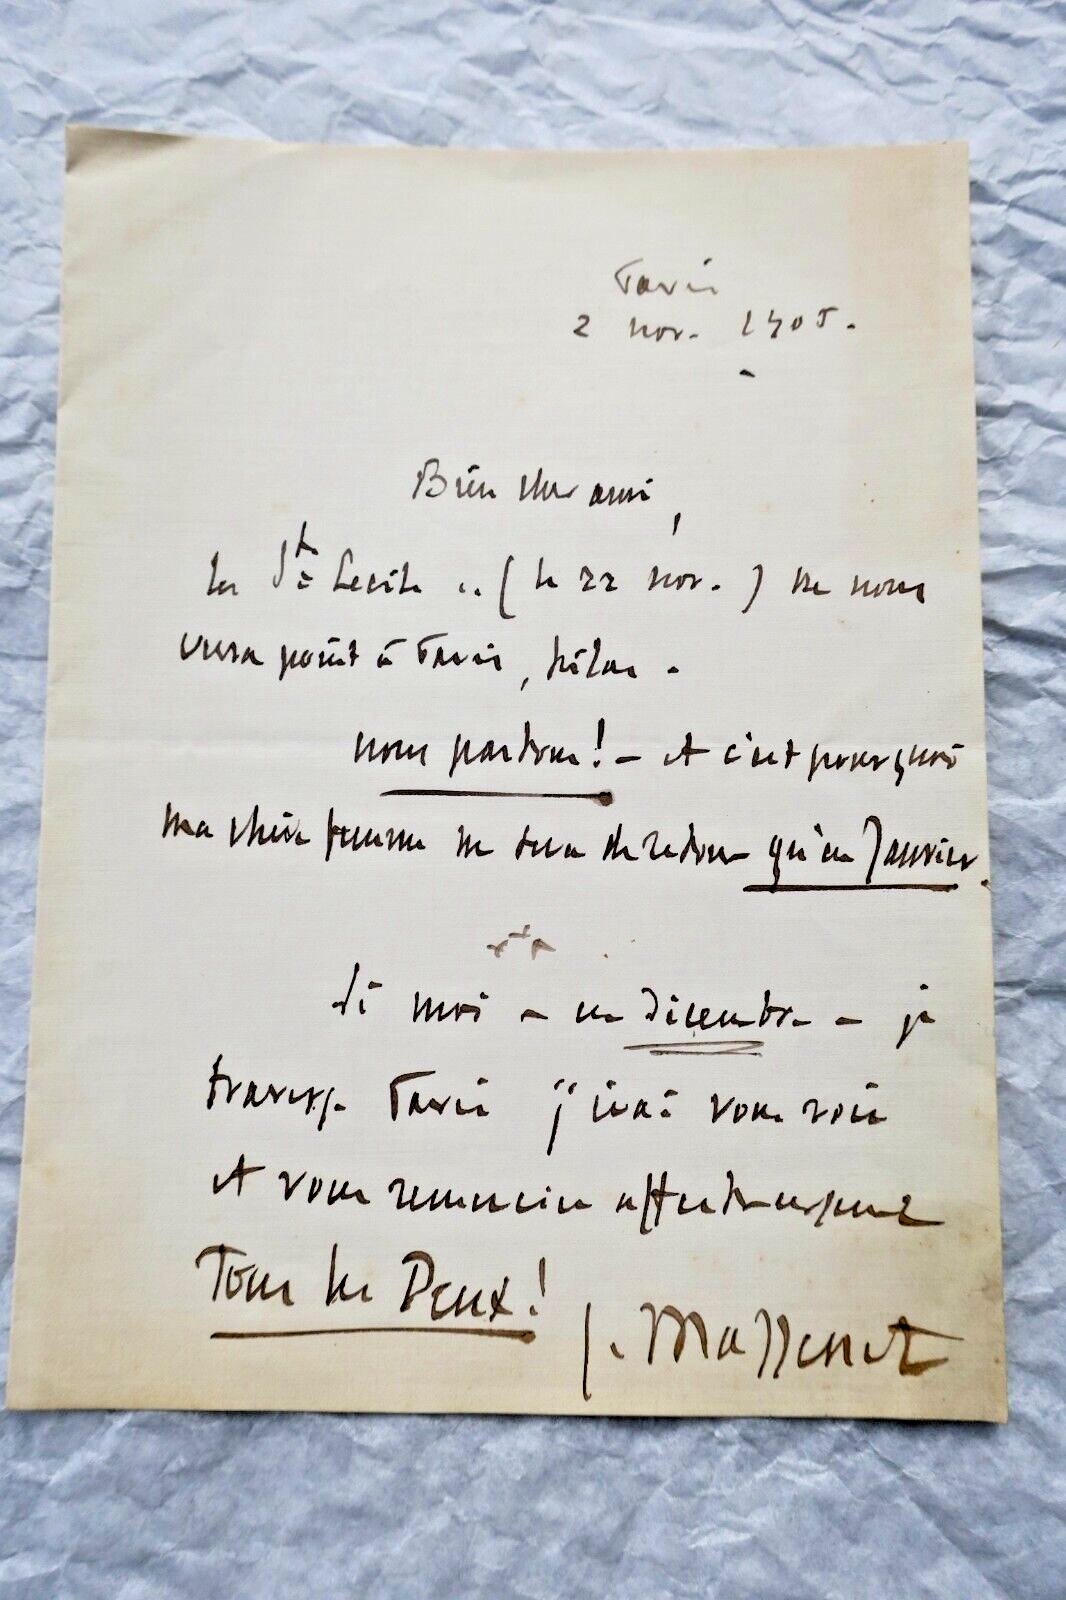 Paris
2 nov. 1905.
Bien cher ami,
la Ste Cécile .. (le 22 nov.) ne nous
verra point à Paris, hélas.
nous partons! – et c'est pourquoi
ma chère femme ne sera de retour qu'en Janvier.
Si moi – en décembre – je
traverse Paris j'irai vous voir
et vous remercier affectueusement
Tous les Deux!
J. Massenet